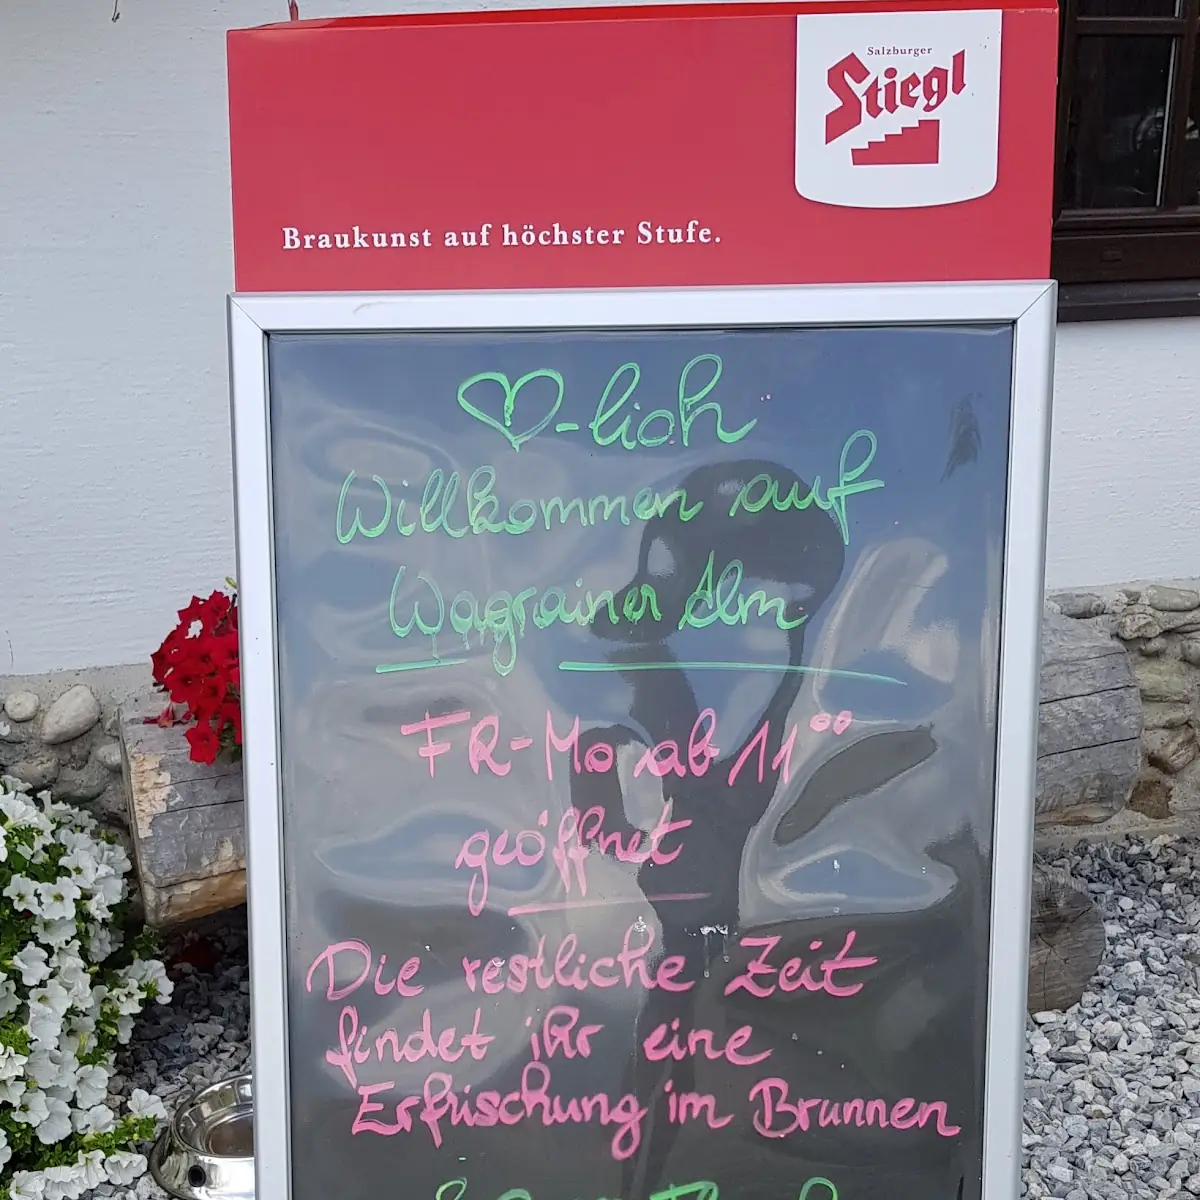 Salzburger
Stiegl
Braukunst auf höchster Stufe.
♡-lich
Willkommen auf
Wagrainer Alm
FR-Mo ab 11⁰⁰
geöffnet
Die restliche Zeit
findet ihr eine
Erfrischung im Brunnen